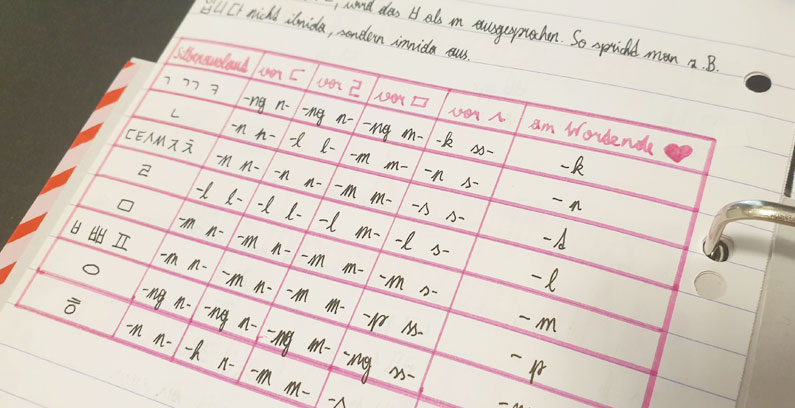 wird das ㅂ als m ausgesprochen. So spricht man z.B.
nicht ibnida, sondern imnida aus.
Silbenauslaut vor ㄷ vor ㄹ vor ㅁ vor ㅅ am Wortende ♥
ㄱ ㄲ ㅋ -ng n- -ng n- -ng m- -k ss- -k
ㄴ -n n- -l l- -m m- -n s- -n
ㄷㅌㅅㅆㅈㅊ -n n- -n n- -m m- -s s-
ㄹ -l l- -l l- -l m- -l s- -l
ㅁ -m n- -m n- -m m- -m s- -m
ㅂ ㅃ ㅍ -m n- -m n- -m m- -p ss- -p
ㅇ -ng n- -ng n- -ng m- -ng ss-
ㅎ -n n- -h n- -m m-